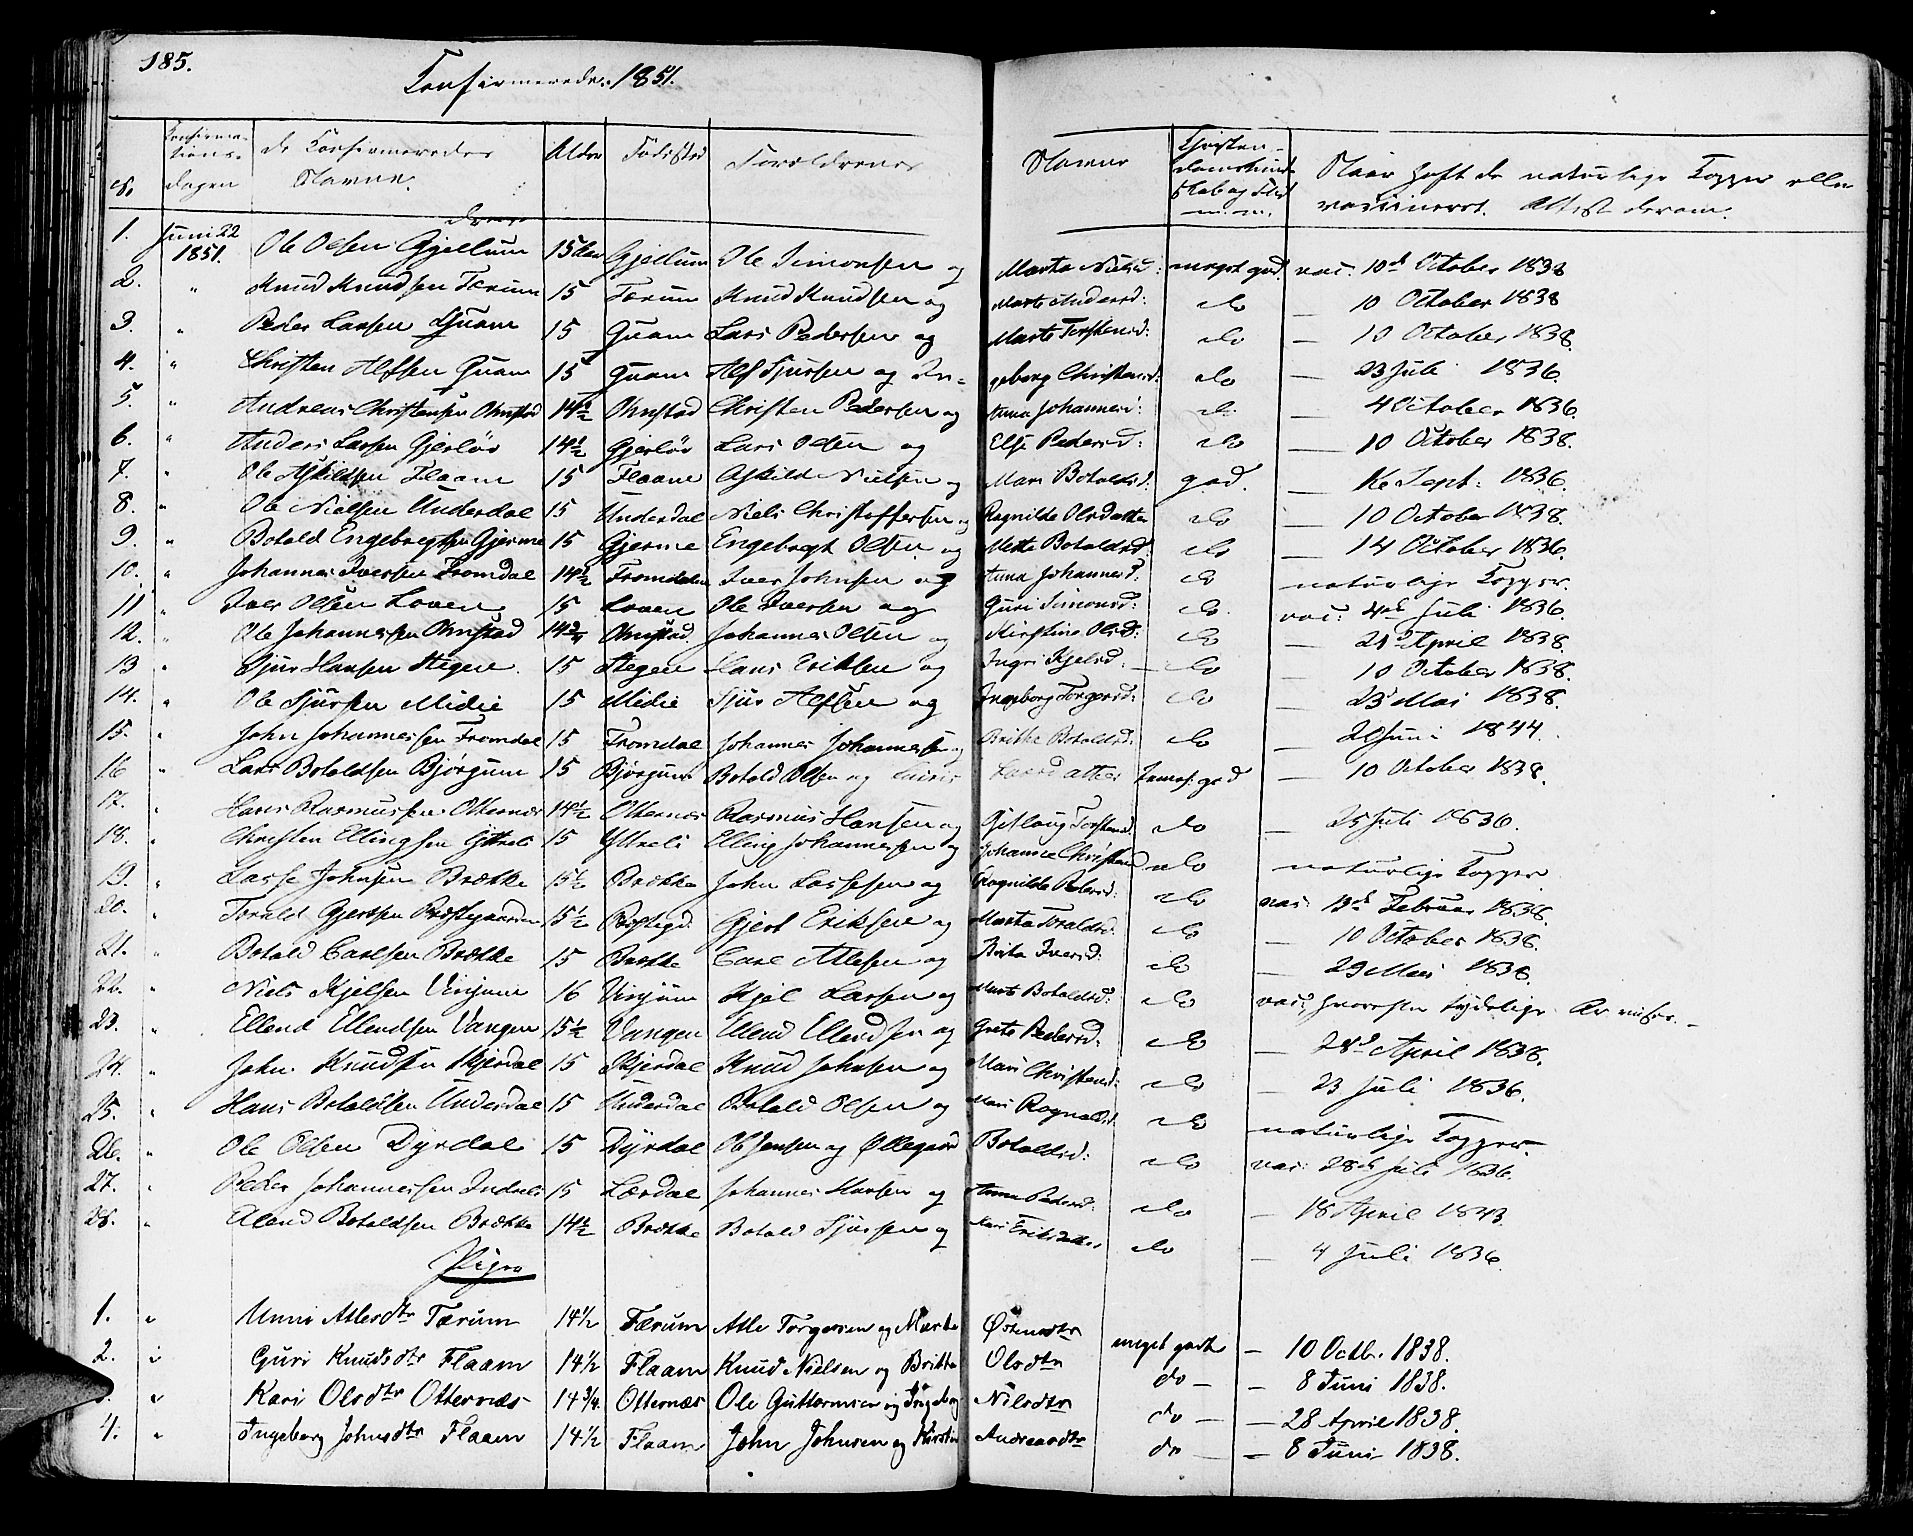 185.
Confirmerede 1851.
No. Confirma-tions-dagen de Confirmeredes Navne. Alder Fødested Forældrenes Navne Christen-doms Kund-skab og Flid m. m. Naar haft de naturlige Kopper eller vaccineret. Attest derom.
Drenge
1. Juni 22 1851. Ole Olsen Gjellum 15 Gjellum Ole Simonsen og Marta Nielsd: meget god. vac. 10de October 1838
2. " Knud Knudsen Færum 15 Færum Knud Knudsen og Marte Andersd: do — 10 October 1838
3. " Peder Larsen Quam 15 Quam Lars Pedersen og Marte Torstensd: do — 10 October 1838.
4. " Christen Alfsen Quam 15 Quam Alf Sjursen og In-geborg Christensd: do — 23 Juli 1836.
5. " Andreas Christensen Ohnstad 14½ Ohnstad Christen Pedersen og Anna Johannesd: do — 4 October 1836.
6. " Anders Larsen Gjerløv 14½ Gjerløv Lars Olsen og Else Pedersd: do — 10 October 1838.
7. " Ole Askildsen Flaam 15 Flaam Askild Nielsen og Mari Botolfsd: god. — 16 Sept: 1836.
8. " Ole Nielsen Underdal 15 Underdal Niels Christoffersen og Ragnilde Olsdatter do — 10 October 1838.
9. " Botold Engebregtsen Gjerme 15 Gjerme Engebregt Olsen og Mette Botoldsd: do — 14 October 1836.
10. " Johannes Iversen Fromdal 14½ Fromdalen Iver Johnsen og Anna Johannesd: do naturlige Kopper.
11 " Iver Olsen Loven 15 Loven Ole Iversen og Guri Simonsd: do. vac: 4de Juli 1836.
12. " Ole Johannessen Ohnstad 14¾ Ohnstad Johannes Olsen og Kirstine Olsd: do — 28 April 1838.
13 " Sjur Hansen Stegen 15 Stegen Hans Eriksen og Ingri Kjelsd: do — 10 October 1838.
14. " Ole Sjursen Midie 15 Midie Sjur Alfsen og Ingeborg Torgersd: do — 23 Mai 1838.
15. " John Johannessen Fromdal 15 Fromdal Johannes Johannessen og Britha Botoldsd: do — 20 Juni 1844.
16 " Lars Botoldsen Bjørgum 15 Bjørgum Botold Olsen og Larsdatter temml. god — 10 October 1838.
17. " Hans Rasmussen Otternæs 14½ Otternæs Rasmus Hansen og Gitlaug Torstensd. do — 25 Juli 1836.
18. " Christen Ellingsen Yttreli 15 Yttreli Elling Johannessen og Johanna Christensd do naturlige Kopper
19. " Lasse Johnsen Brække 15½ Brække John Lassesen og Ragnilde Pedersd: do vac: 13de Februar 1838.
20. " Torald Gjertsen Præstegaarden 15½ Præstegd. Gjert Eriksen og Marta Toraldsd: do — 10 October 1838.
21. " Botold Carlsen Brække 15 Brække Carl Atlesen og Brita Iversd: do — 29 Mai 1838
22. " Niels Kjelsen Vinjum 16 Vinjum Kjel Larsen og Marte Botoldsd: do vac: hvorefter tydelige Ar vises. —
23. " Ellend Ellendsen Vangen 15½ Vangen Ellend Ellendsen og Grete Pedersd: do — 28de April 1838.
24. " John Knudsen Skjerdal 15 Skjerdal Knud Johnsen og Mari Christensd: do — 23 Juli 1836.
25. " Hans Botoldsen Underdal 15 Underdal Botold Olsen og Mari Ragnaldsd. do naturlige Kopper.
26. " Ole Olsen Dyrdal 15 Dyrdal Ole Jensen og Ollegaard Botoldsd: do vac: 28de Juli 1836.
27. " Peder Johannessen Indreli 15 Lærdal Johannes Hansen og Anna Pedersd: do — 18 April 1843.
28. " Elend Botoldsen Brække 14½ Brække Botold Sjursen og Kari Eriksdatter do — 4 Juli 1836
Piger
1. " Unni Atlesdtr Færum 14½ Færum Atle Torgersen og Marta Østensdtr meget godt — 10 Octb. 1838.
2. " Guri Knudsdtr Flaam 14½ Flaam Knud Nielsen og Britta Olsdtr do — — 8 Juni 1838.
3. " Kari Olsdtr Otternæs 14¾ Otternæs Ole Guttormsen og Ingeborg Nilsdtr do — — 28 April 1838.
4. " Ingeborg Johnsdtr Flaam 14½ Flaam John Johnsen og Kirstin Andreasdtr do — — 8 Juni 1838.